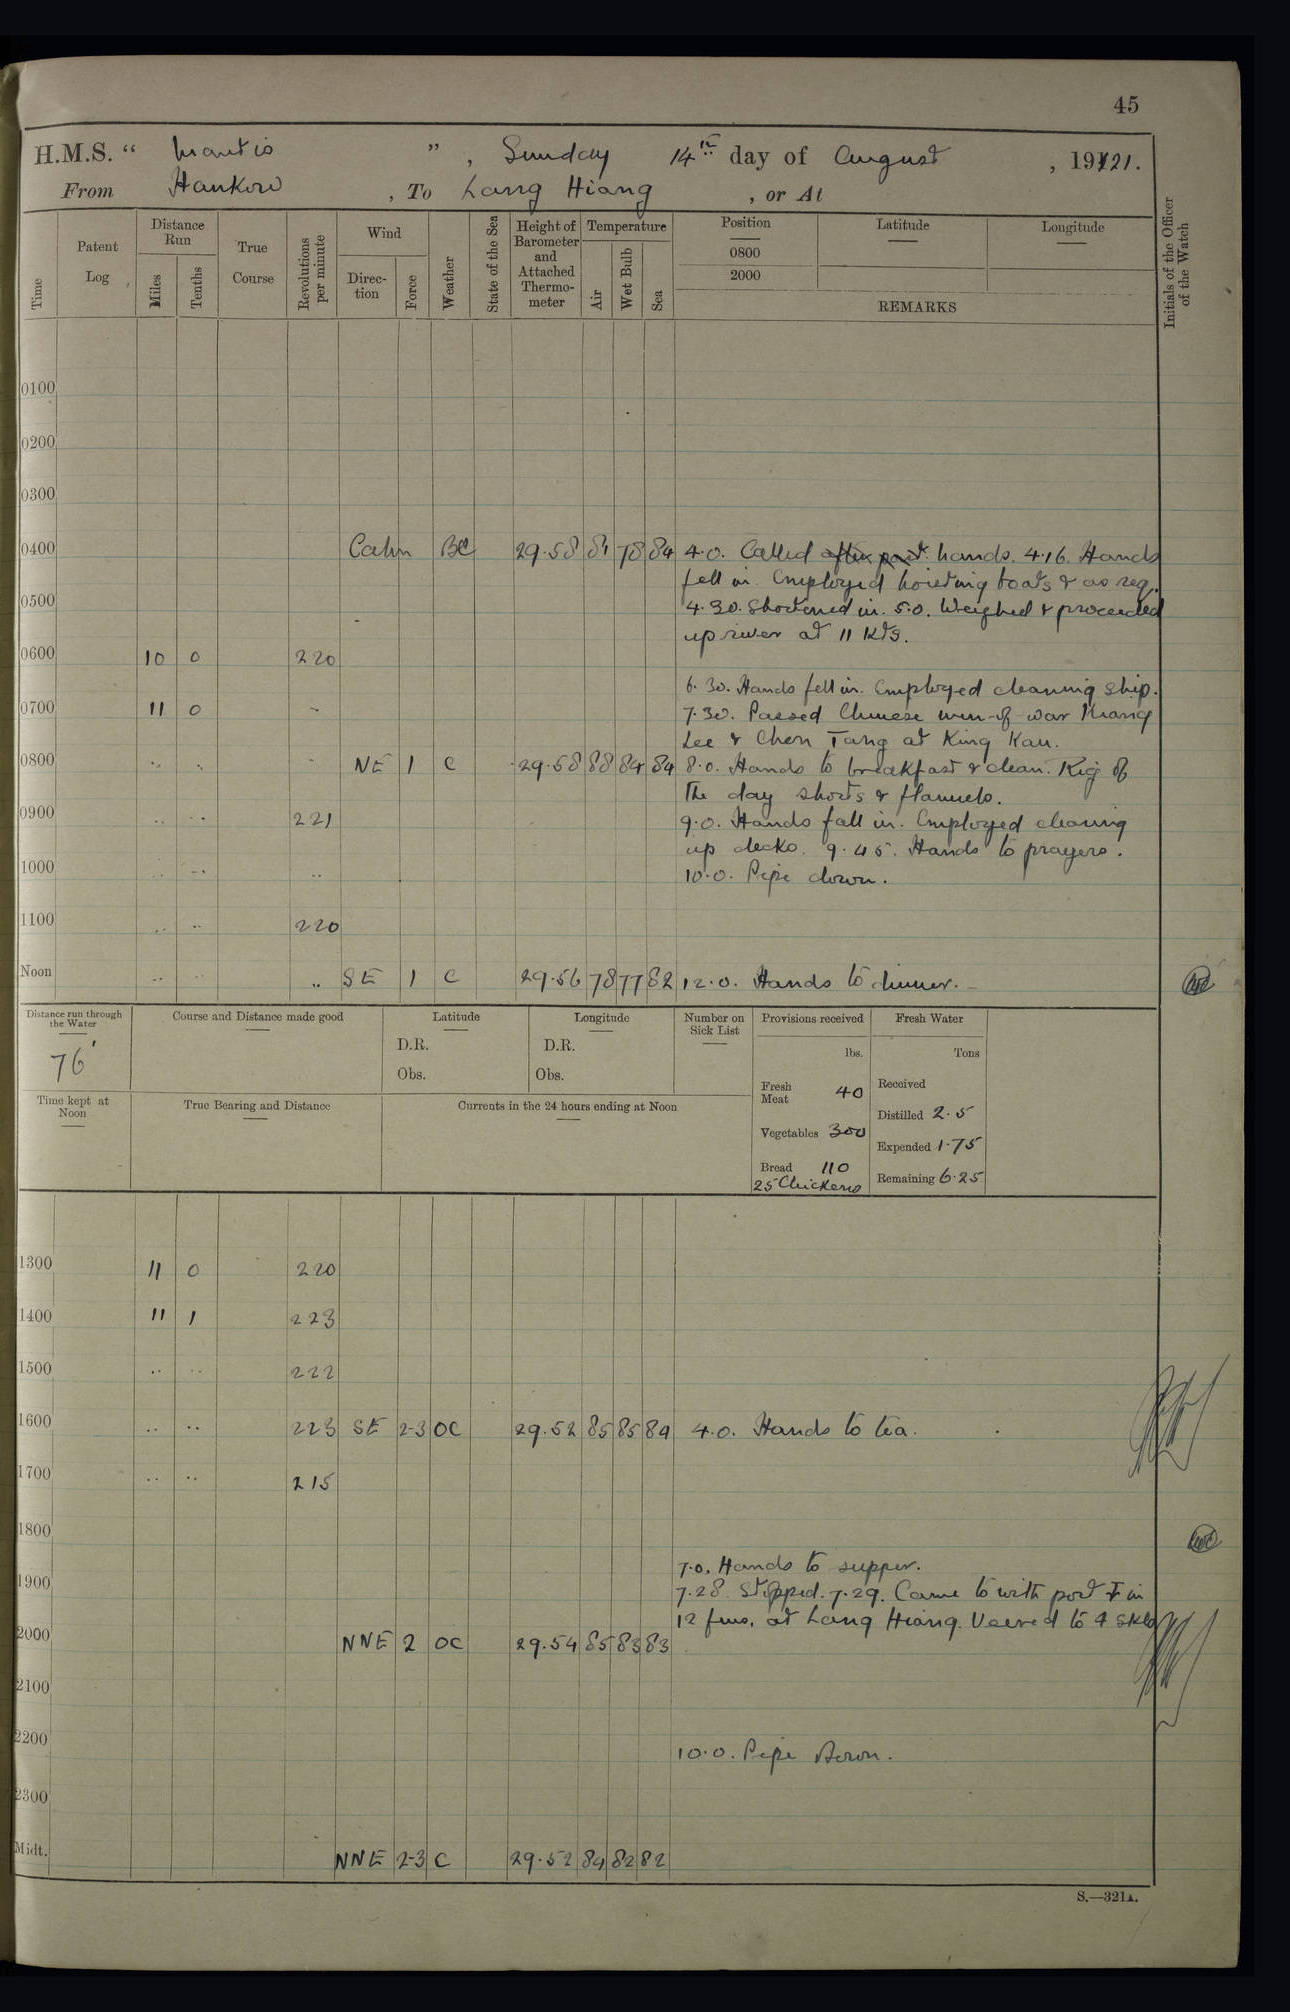 45
H.M.S. “ Mantis ” , Sunday 14th day of August , 1921.
From Hankow , To Lang Hiang , or At
Time
Patent Log
Distance Run
Miles
Tenths
True Course
Revolutions per minute
Wind
Direc-tion
Force
Weather
State of the Sea
Height of Barometer and Attached Thermo-meter
Temperature
Air
Wet Bulb
Sea
Position
0800
2000
Latitude
Longitude
REMARKS
Initials of the Officer of the Watch
0100
0200
0300
0400 Calm BC 29.58 81 78 84 4.0. Called after part hands. 4.16. Hands
fell in. Employed hoisting boats & as req.
0500 4.30. Shortened in. 5.0. Weighed & proceeded
up river at 11 Kts.
0600 10 0 220
6.30. Hands fell in. Employed cleaning ship.
0700 11 0 " 7.30. Passed Chinese men-of-war
Lee & Chen Tang at King Kau.
0800 " " " NE 1 C 29.58 88 84 84 8.0. Hands to breakfast & clean. Rig of
The day shorts & flannels.
0900 " " 221 9.0. Hands fall in. Employed cleaning
up decks. 9.45. Hands to prayers.
1000 " " " 10.0. Pipe down.
1100 " " 220
Noon " " " SE 1 C 29.56 78 77 82 12.0. Hands to dinner.
Distance run through the Water
76'
Course and Distance made good
Latitude
D.R.
Obs.
Longitude
D.R.
Obs.
Number on Sick List
Provisions received
lbs.
Fresh Meat 40
Vegetables 300
Bread 110
25 Chickens
Fresh Water
Tons
Received
Distilled 2.5
Expended 1.75
Remaining 6.25
Time kept at Noon
True Bearing and Distance
Currents in the 24 hours ending at Noon
1300 11 0 220
1400 11 1 223
1500 " " 222
1600 " " 223 SE 2-3 OC 29.52 85 85 84 4.0. Hands to tea.
1700 " " 215
1800
7.0. Hands to supper.
1900 7.28. Stopped. 7.29. Came to with port ⚓ in
12 fms. at Lang Hiang. Veered to 4 skls
2000 NNE 2 OC 29.54 85 83 83
2100
2200 10.0. Pipe Down.
2300
Midt. NNE 2-3 C 29.52 84 82 82
S.—321A.